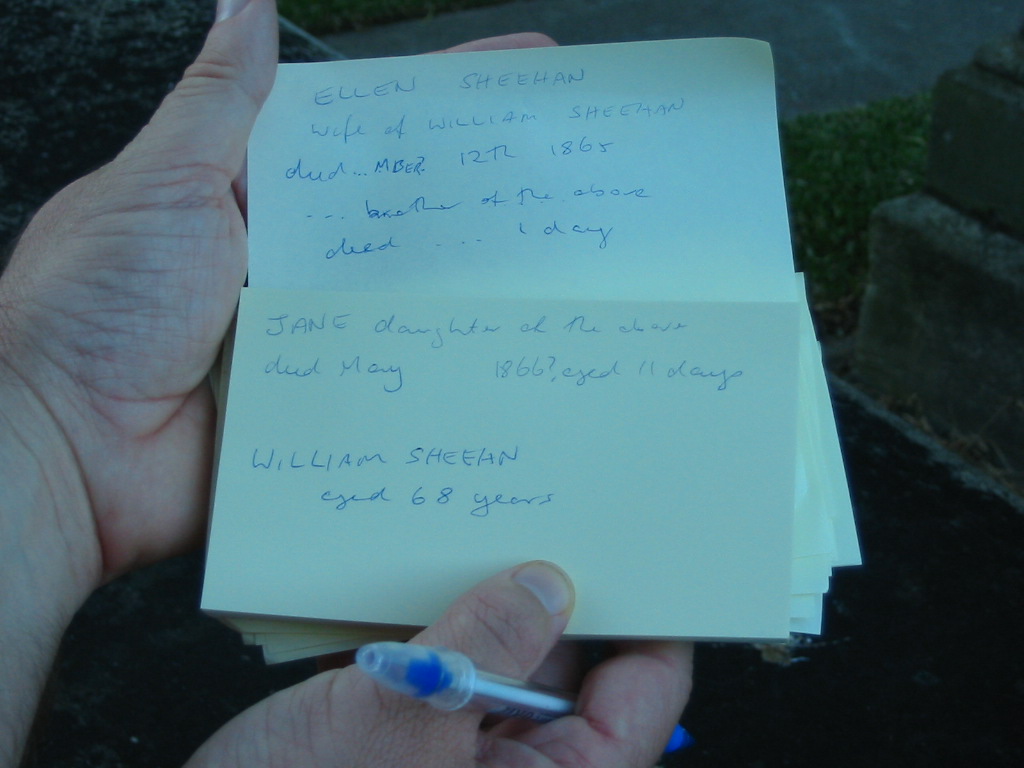 ELLEN SHEEHAN
wife of WILLIAM SHEEHAN
died... MBER? 12Th 1865
--- brother of the above
died .... 1 day
JANE daughter of the above
died May 1866?, aged 11 days
WILLIAM SHEEHAN
aged 68 years